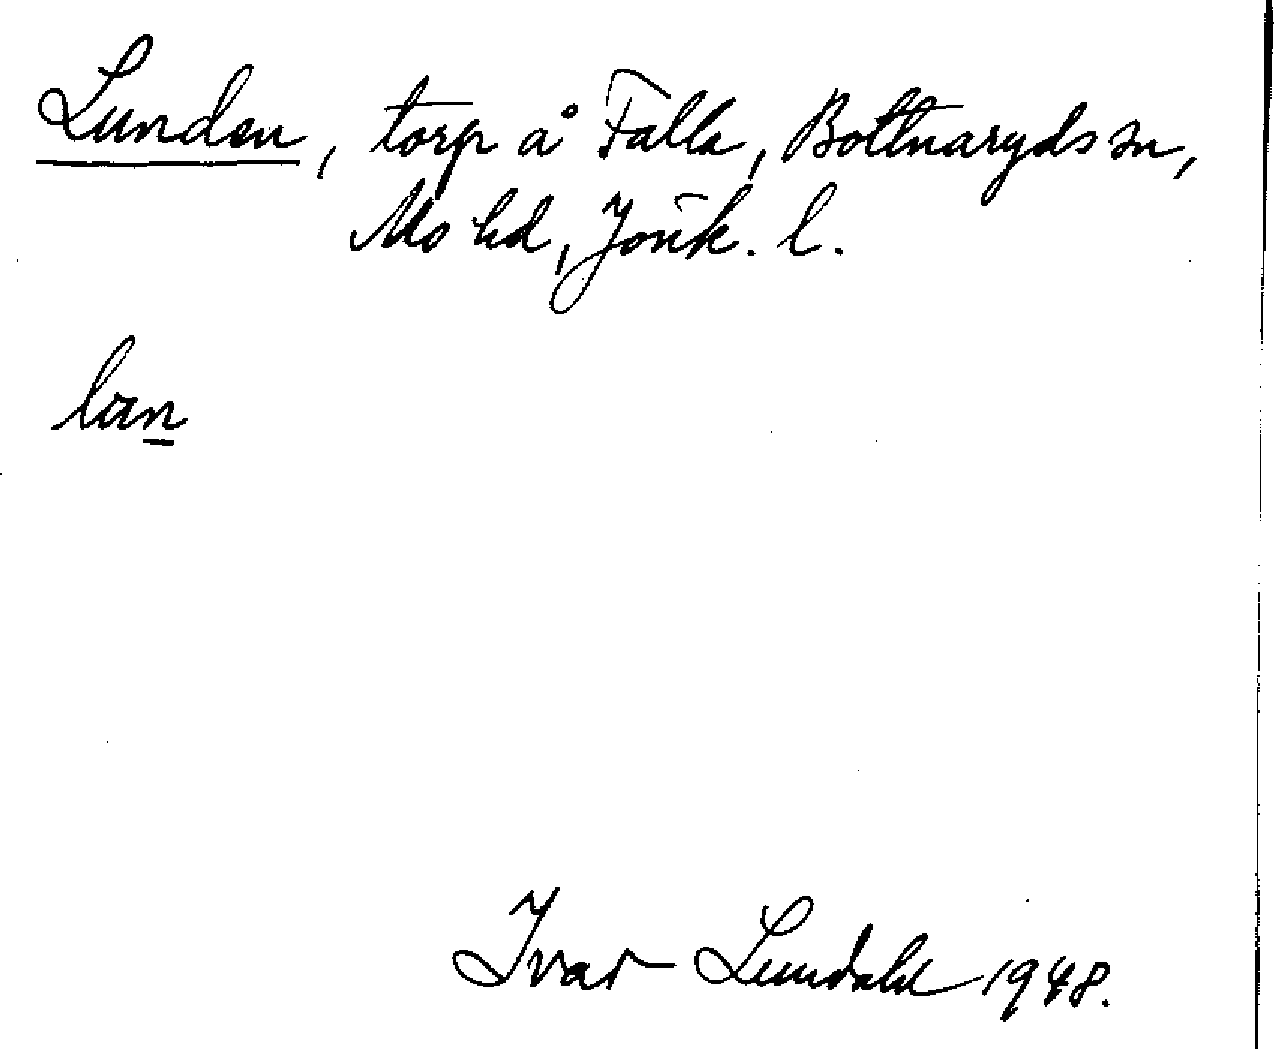 Lunden, torp å Falla, Bottnaryds sn,
Mo hd, Jönk. l.
lan
Ivar Lundahl 1948.